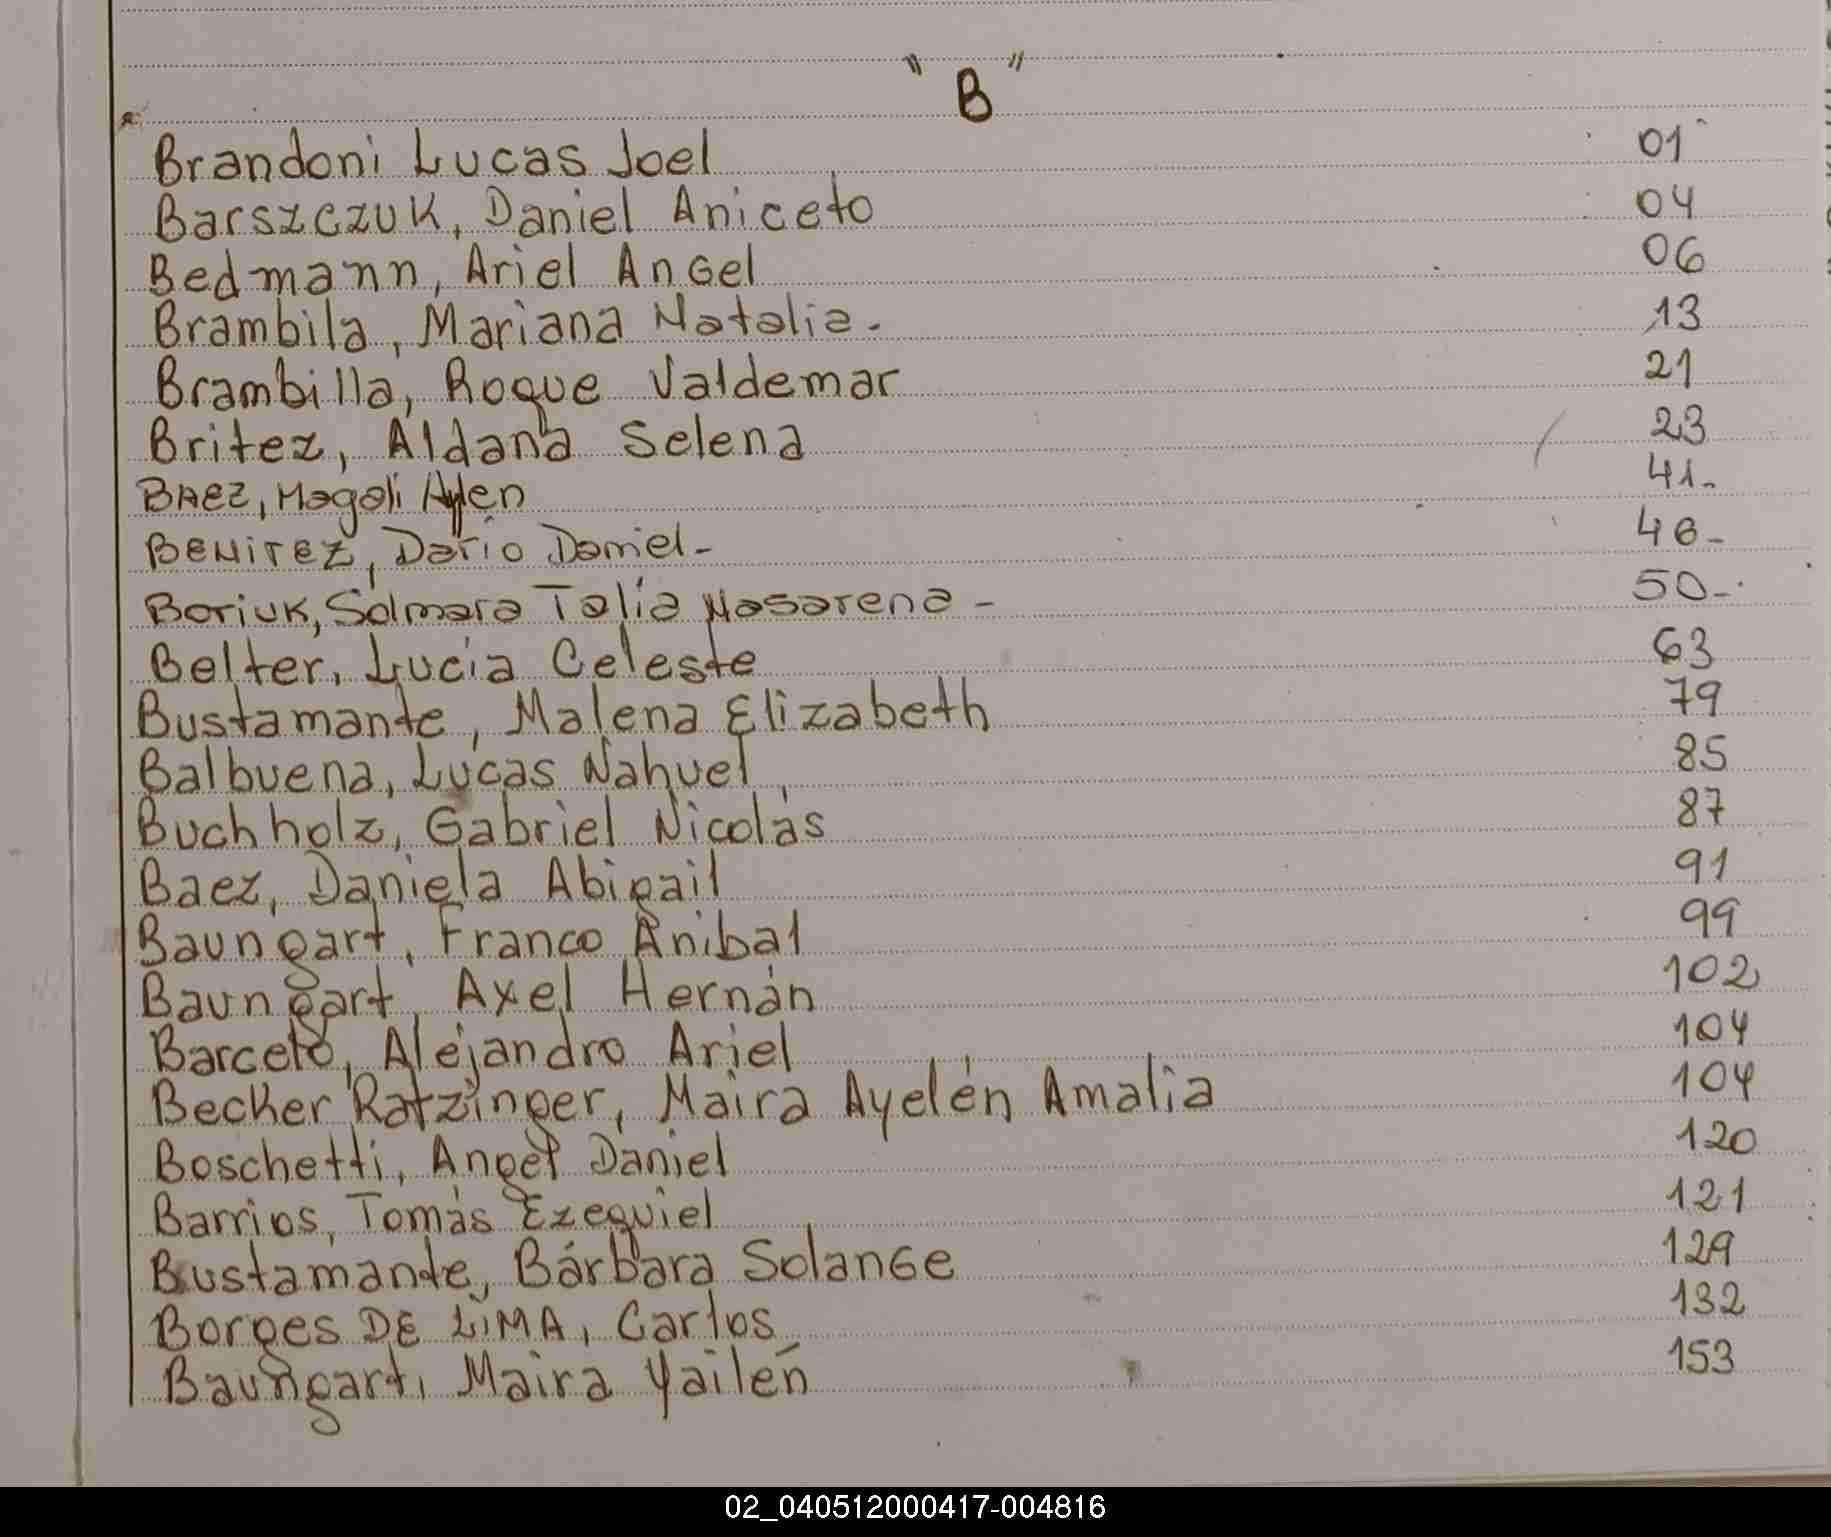 "B"
Brandoni Lucas Joel 01
Barszczuk, Daniel Aniceto 04
Bedmann, Ariel Angel 06
Brambila, Mariana Natalia. 13
Brambilla, Roque Valdemar 21
Britez, Aldana Selena 23
BAEZ, Magali Aylen 41.
BENITEZ, Dario Daniel- 46-
Boriuk, Solmara Talia Nasarena - 50-
Belter, Lucia Celeste 63
Bustamante, Malena Elizabeth 79
Balbuena, Lucas Nahuel 85
Buchholz, Gabriel Nicolás 87
Baez, Daniela Abigail 91
Baungart, Franco Anibal 99
Baungart, Axel Hernán 102
Barceló, Alejandro Ariel 104
Becker Ratzinger, Maira Ayelén Amalia 104
Boschetti, Angel Daniel 120
Barrios, Tomás Ezequiel 121
Bustamante, Bárbara Solange 129
Borges DE LIMA, Carlos 132
Baungart, Maira Yailén 153
02_040512000417-004816